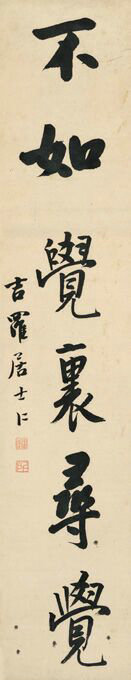 不如覺裏尋覺
吉羅居士仁